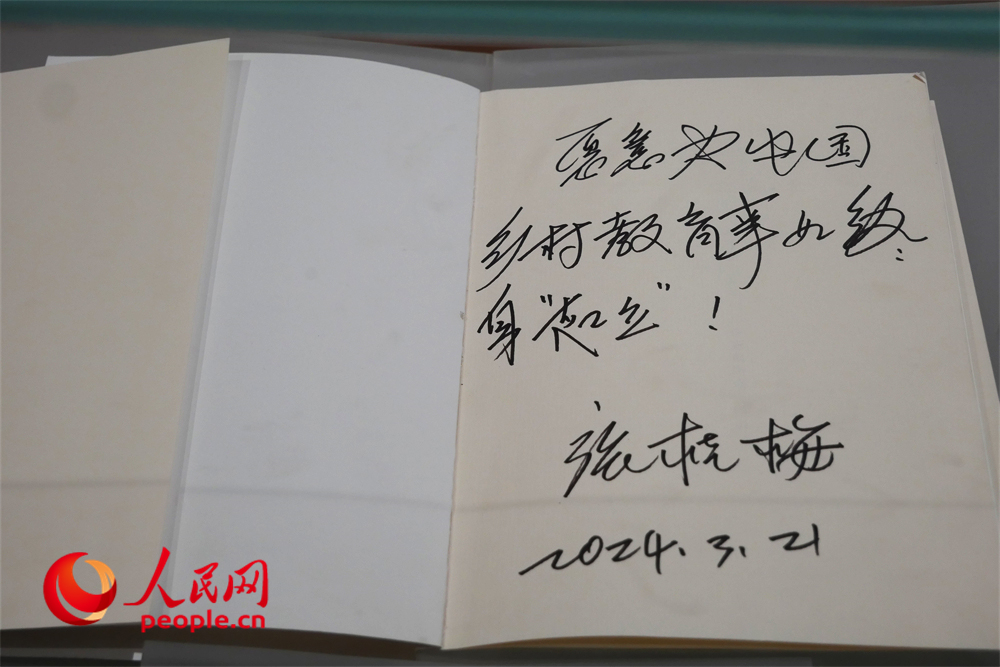 愿意为中国
乡村教育事业终
身" "！
张桂梅
2024.3.21
人民网
people.cn